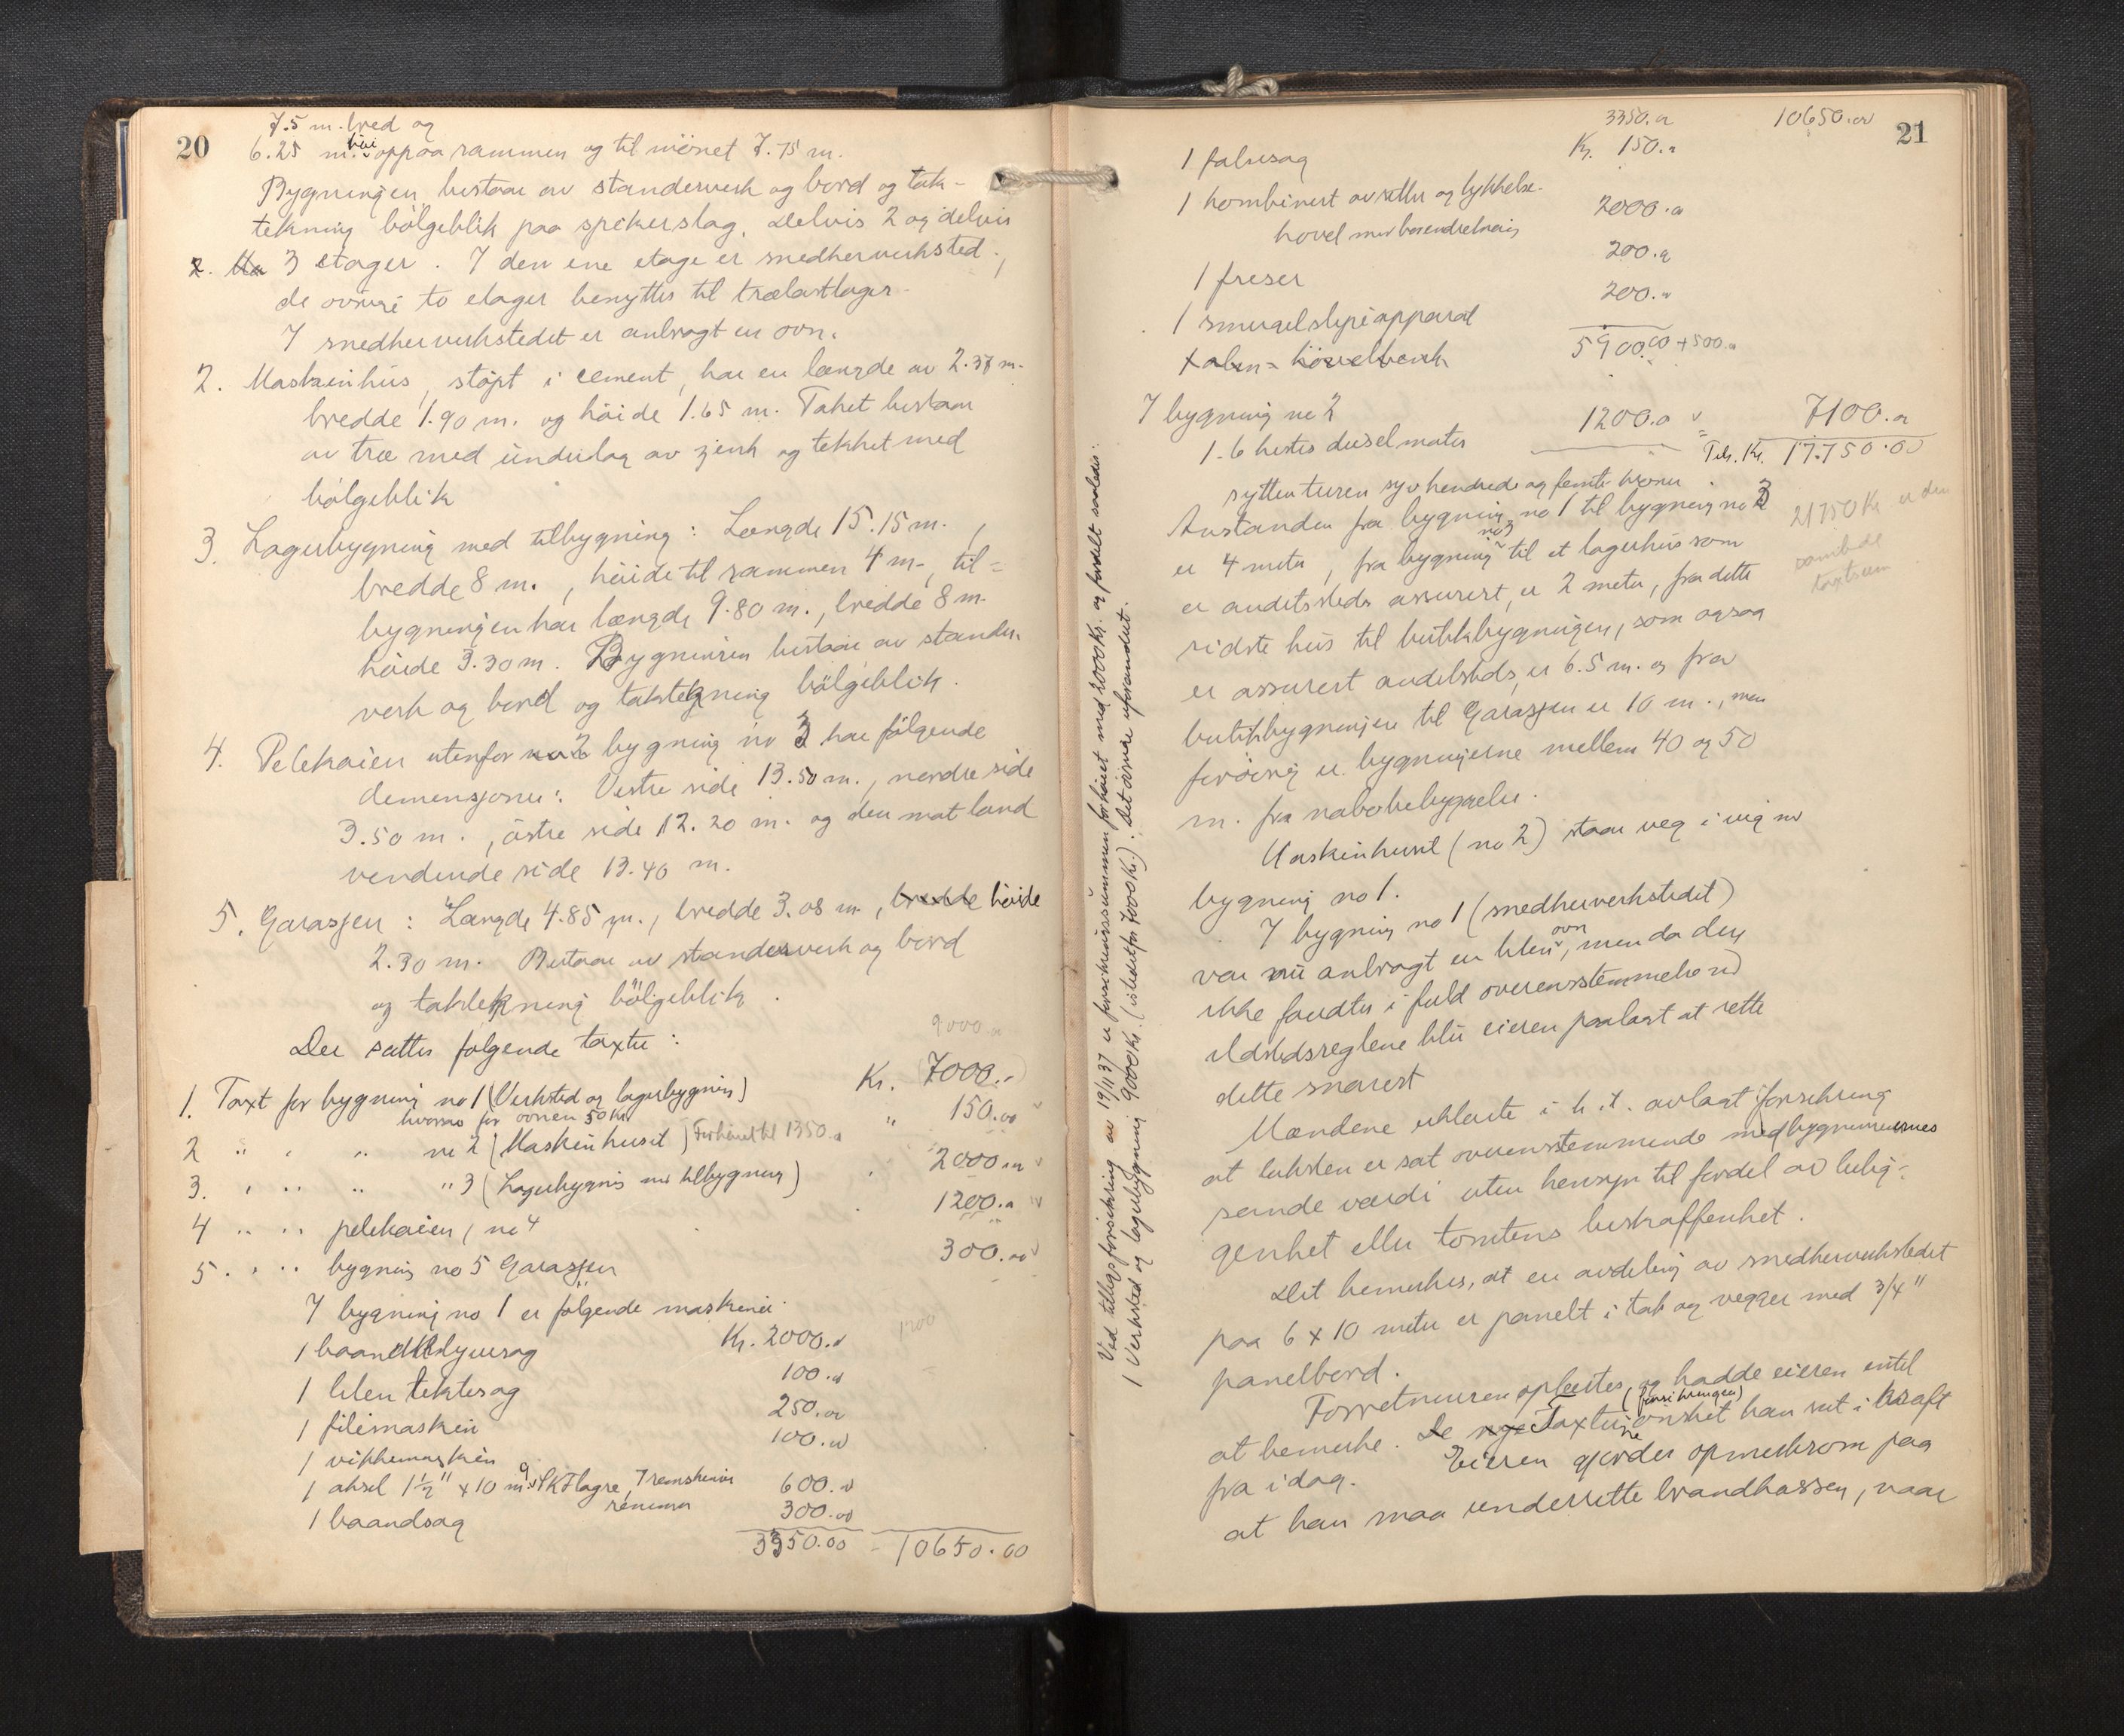 20
7.5 m. bred og
6.25 m. höi oppaa rammen og til mönet 7.75 m.
Bygningen bestaar av standerverk og bord og tak-
tekning bölgeblik paa spikerslag. Delvis 2 og delvis
3 etager. I den ene etage er snedkerverksted,
de övrige to etager benyttes til trælastlager.
I snedkerverkstedet er anbragt en ovn.
2. Maskinhus, støpt i cement, har en længde av 2.38 m.
bredde 1.90 m. og höide 1.65 m. Taket bestaar
av træ med underlag av zink og tekket med
bölgeblik
3. Lagerbygning med tilbygning: Længde 15.15 m.,
bredde 8 m., höide til rammen 4 m., til=
bygningen har længde 9.80 m., bredde 8 m.
höide 3.30 m. Bygningen bestaar av stander-
verk og bord og taktekning bölgeblik.
4. Pelekaien utenfor no 2 bygning no 3 har fölgende
demensjoner: Vestre side 13.50 m., nordre side
3.50 m., östre side 12.20 m. og den mot land
vendende side 13.40 m.
5. Garasjen: Længde 4.85 m., bredde 3.08 m, bredde höide
2.30 m. Bestaar av standerverk og bord
og taktekning bölgeblik.
Der sattes følgende taxter:
9000.-
1. Taxt for bygning no 1 (Verksted og lagerbygning) Kr. 7000.-
hvorav for ovnen 50 Kr
2 " " " no 2 (Maskinhuset) Forhöiet til 1350.- " 150.00
3. " " " " 3 (Lagerbygnig med tilbygning) " 2000.00
4 " " pelekaien, no 4 1200.-
5. " " bygning no 5 Garasjen 300.00
I bygning no 1 er følgende maskiner:
1 baandklyversag Kr. 2000.00
1200
1 liten tektesag 100.00
1 filemaskin 250.00
1 vikkemaskin 100.00
1 aksel 1 1/2" x 10 m. 9 SKF lagre, 7 remskiver 600.00
remmer
1 baandsag 300.00
3350.00 - 10650.00
21
3350.00 10650.00
1 falsesag Kr. 150.-
1 kombinert avretter og tykkelse-
hovel med boreindretning 2000.00
1 freser 200.-
1 smergelslipeapparat 200.-
høvelbenk 5900.00 + 500.-
I bygning no 2
1. 6 hestes dieselmotor 1200.- 7100.-
Tils. Kr. 17.750.00
sytten tusen syv hundrede og femti kroner.
Avstanden fra bygning no 1 til bygning no 3
21750 Kr er den
samlede
taxtsum
er 4 meter, fra bygning no 3 til et lagerhus som
er andetsteds assurert, er 2 meter, fra dette
sidste hus til butikbygningen, som ogsaa
er assurert andetsteds, er 6.5 m. og fra
butikbygningen til Garasjen er 10 m., men
forövrig er bygningerne mellem 40 og 50
m. fra nabobebyggelse.
Maskinhuset (no 2) staar veg i veg med
bygning no 1.
I bygning no 1 (snedkerverkstedet)
var nu anbragt en liten ovn, men da den
ikke fandtes i fuld overensstemmelse med
Ildstedsreglene blev eieren paalagt at rette
dette snarest
Mændene erklærte i h. t. avlagt forsikring
at taksten er sat overensstemmende med bygningernes
sande værdi uten hensyn til fordel av belig-
genhet eller tomtens beskaffenhet.
Det bemerkes, at en avdeling av snedkerverkstedet
paa 6 x 10 meter er panelt i tak og vegger med 3/4"
panelbord.
Forretningen oplæstes, og hadde eieren intet
at bemerke. De nye Taxterne (forsikringen) önsket han sat i kraft
fra idag. Eieren gjordes opmerksom paa
at han maa underrette brandkassen, naar
Ved tillægsforsikring av 19/11 37 er forsikringssummen forhöiet med 2000 Kr. og fordelt saaledes:
1 Verksted og lagerbygning 9000 Kr. (istedetfor 7000 Kr.). Det övrige uforandret.